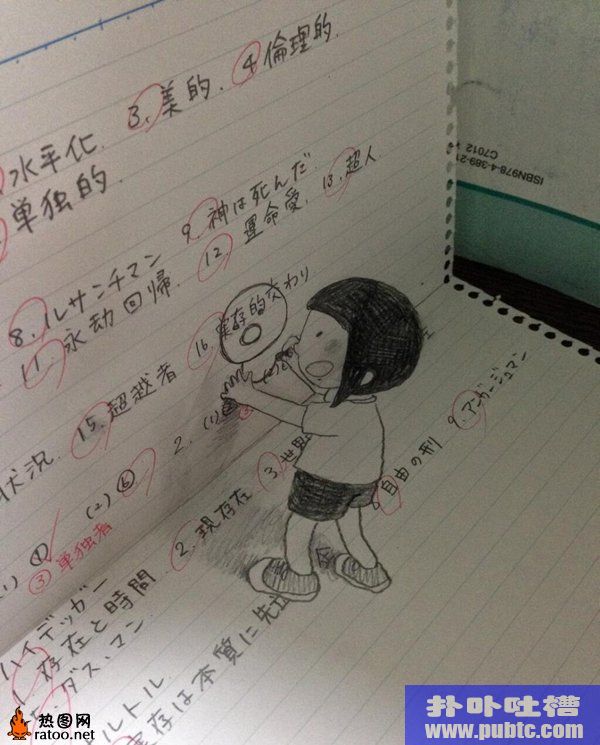 3. 美的. ④ 倫理的.
水平化
単独的
8. ルサンチマン 9. 神は死んだ.
11. 永劫回帰. 12. 運命愛. 13. 超人
状況. 15. 超越者 16. 実存的交わり
(2) ⑥ 2. (1)
① ③ 単独者
ハイデッガー
1. 存在と時間 2. 現存在 3. 世界
ダス・マン
ルトル
実存は本質に先立
8. 自由の刑 9. アンガージュマン
ISBN978-4-389-21
C7012
热图网
ratoo.net
扑卟吐槽
www.pubtc.com